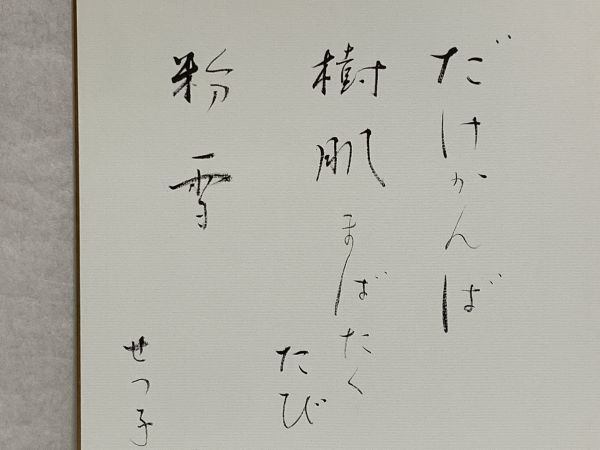 だけかんば
樹肌まばたく
たび
粉雪
せつ子